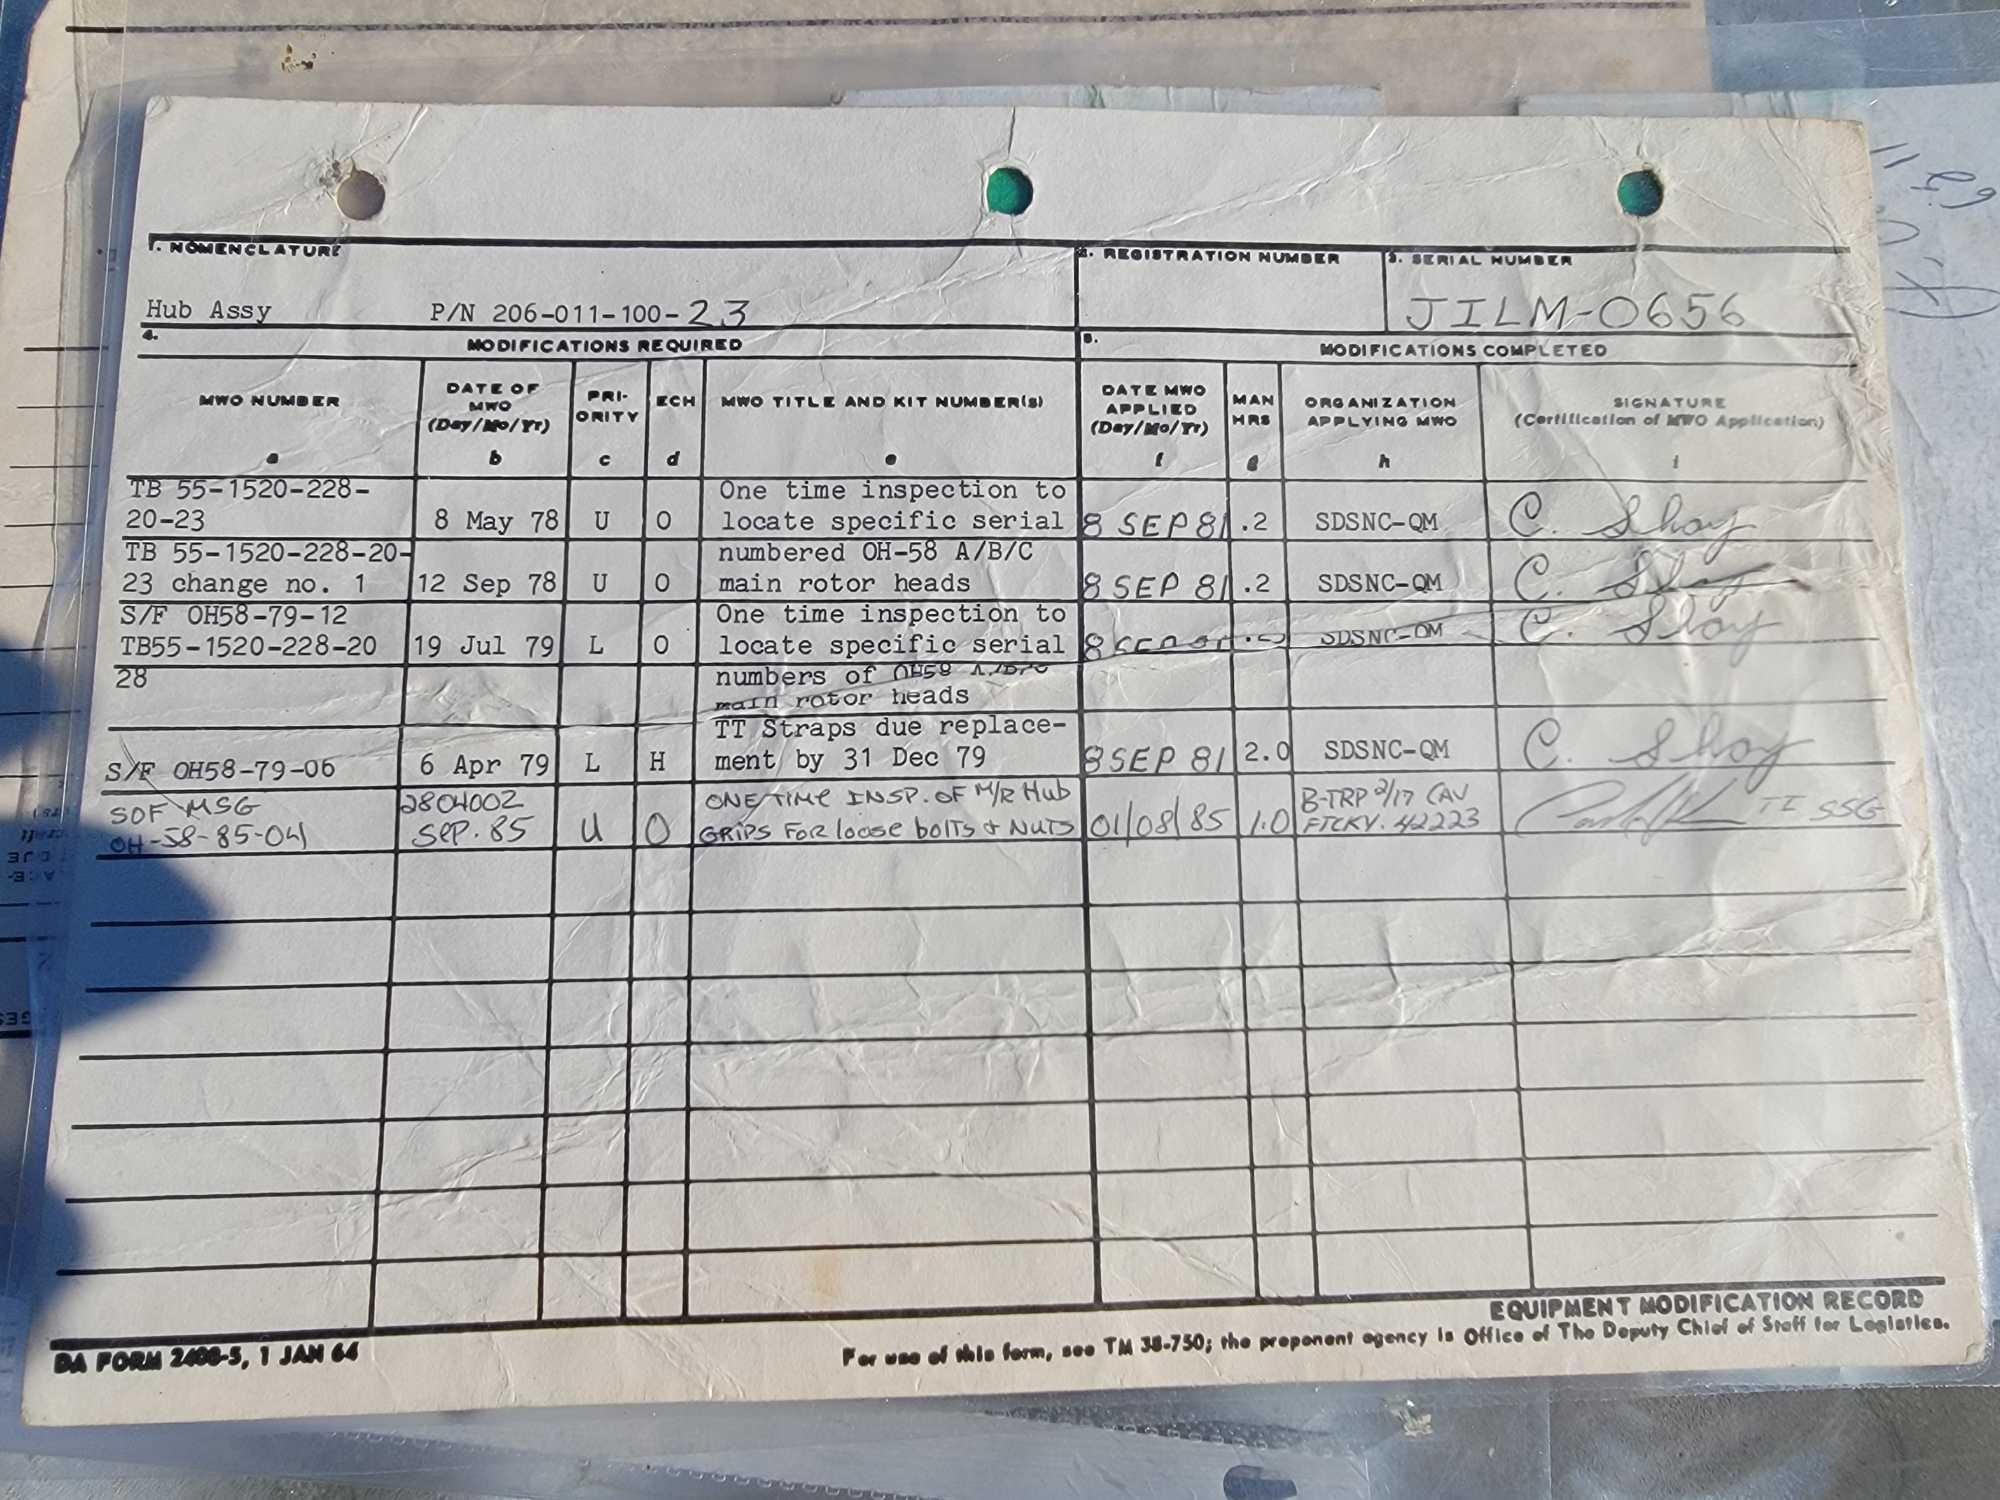 1. NOMENCLATURE
2. REGISTRATION NUMBER
3. SERIAL NUMBER
Hub Assy P/N 206-011-100-23
JILM-0656
4. MODIFICATIONS REQUIRED
5. MODIFICATIONS COMPLETED
MWO NUMBER
a
DATE OF
MWO
(Day/Mo/Yr)
b
PRI-
ORITY
c
ECH
d
MWO TITLE AND KIT NUMBER(S)
e
DATE MWO
APPLIED
(Day/Mo/Yr)
f
MAN
HRS
g
ORGANIZATION
APPLYING MWO
h
SIGNATURE
(Certification of MWO Application)
i
TB 55-1520-228-
20-23
8 May 78
U
O
One time inspection to
locate specific serial
8 SEP 81
.2
SDSNC-QM
C. Shay
TB 55-1520-228-20-
23 change no. 1
12 Sep 78
U
O
numbered OH-58 A/B/C
main rotor heads
8 SEP 81
.2
SDSNC-QM
C. Shay
S/F OH58-79-12
TB55-1520-228-20
19 Jul 79
L
O
One time inspection to
locate specific serial
8 SEP 81
SDSNC-QM
C. Shay
28
numbers of OH58 A/B/C
main rotor heads
S/F OH58-79-06
6 Apr 79
L
H
TT Straps due replace-
ment by 31 Dec 79
8 SEP 81
2.0
SDSNC-QM
C. Shay
SOF MSG
OH-58-85-04
280400Z
SEP. 85
U
O
ONE TIME INSP. OF M/R Hub
GRIPS FOR loose bolts & NUTS
01/08/85
1.0
B-TRP 2/17 CAV
FTCKY. 42223
TI SSG
EQUIPMENT MODIFICATION RECORD
DA FORM 2408-5, 1 JAN 64
For use of this form, see TM 38-750; the proponent agency is Office of The Deputy Chief of Staff for Logistics.